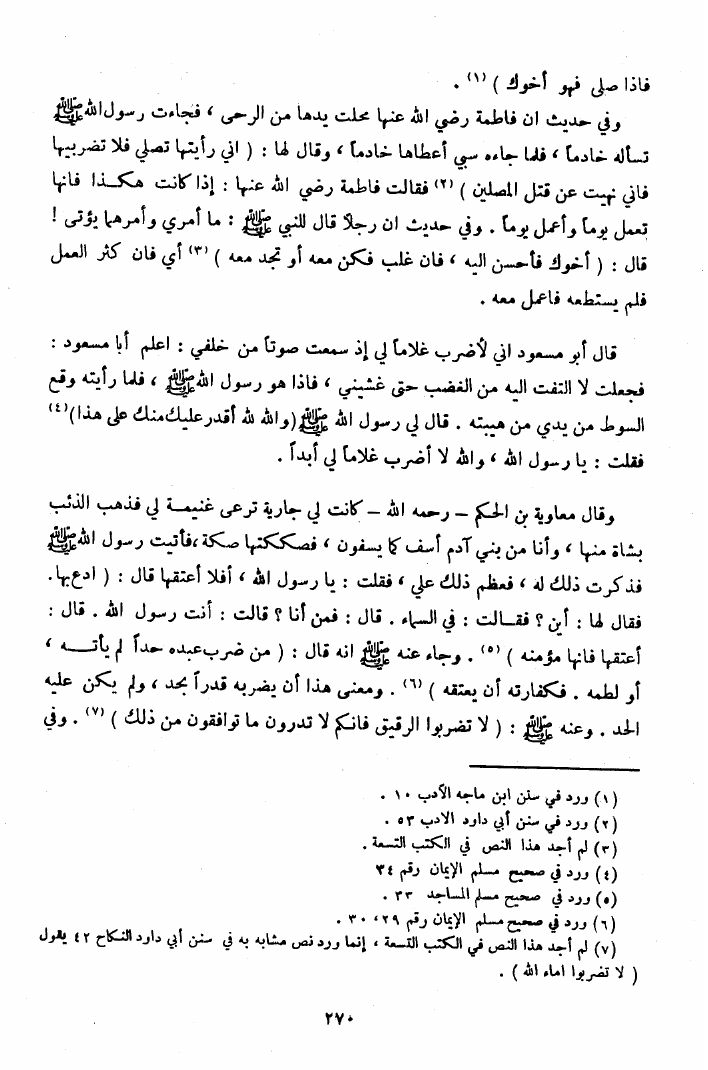 فاذا صلى فهو أخوك ) (١) .
وفي حديث ان فاطمة رضي الله عنها مجلت يدها من الرحى ، فجاءت رسول الله ﷺ
تسأله خادماً ، فلما جاءه سبي أعطاها خادماً ، وقال لها : ( اني رأيتها تصلي فلا تضربيها
فاني نهيت عن قتل المصلين ) (٢) فقالت فاطمة رضي الله عنها : إذا كانت هكـذا فانها
تعمل يوماً وأعمل يوماً . وفي حديث ان رجلاً قال للنبي ﷺ : ما أمري وأمرهما يؤتى !
قال : ( أخوك فأحسن اليه ، فان غلب فكن معه أو تجد معه ) (٣) أي فان كثر العمل
فلم يستطعه فاعمل معه .
قال أبو مسعود اني لأضرب غلاماً لي إذ سمعت صوتاً من خلفي : اعلم أبا مسعود :
فجعلت لا التفت اليه من الغضب حتى غشيني ، فاذا هو رسول الله ﷺ ، فلما رأيته وقع
السوط من يدي من هيبته . قال لي رسول الله ﷺ (والله لله أقدر عليك منك على هذا) (٤)
فقلت : يا رسول الله ، والله لا أضرب غلاماً لي أبداً .
وقال معاوية بن الحكم – رحمه الله – كانت لي جارية ترعى غنيمـة لي فذهب الذئب
بشاة منها ، وأنا من بني آدم أسف كما يسفون ، فصككتها صكة ، فأتيت رسول الله ﷺ
فذكرت ذلك له ، فعظم ذلك علي ، فقلت : يا رسول الله ، أفلا أعتقها قال : ( ادع بها.
فقال لها : أين ؟ فقـالت : في السماء . قال : فمن أنا ؟ قالت : أنت رسول الله . قال :
أعتقها فانها مؤمنه ) (٥) . وجاء عنه ﷺ انه قال : ( من ضرب عبده حداً لم يأتـه ،
أو لطمه . فكفارته أن يعتقه ) (٦) . ومعنى هذا أن يضربه قدراً بحد ، ولم يكن عليه
الحد . وعنه ﷺ : ( لا تضربوا الرقيق فانكم لا تدرون ما توافقون من ذلك ) (٧) . وفي
(١) ورد في سنن ابن ماجه الأدب ١٠ .
(٢) ورد في سنن أبي داود الادب ٥٣ .
(٣) لم أجد هذا النص في الكتب التسعة .
(٤) ورد في صحيح مسلم الإيمان رقم ٣٤
(٥) ورد في صحيح مسلم المساجد ٣٣ .
(٦) ورد في صحيح مسلم الإيمان رقم ٢٩ ، ٣٠ .
(٧) لم أجد هذا النص في الكتب التسعة ، إنما ورد نص مشابه به في سنن أبي داود النكاح ٤٢ يقول
( لا تضربوا اماء الله ) .
٢٧٠